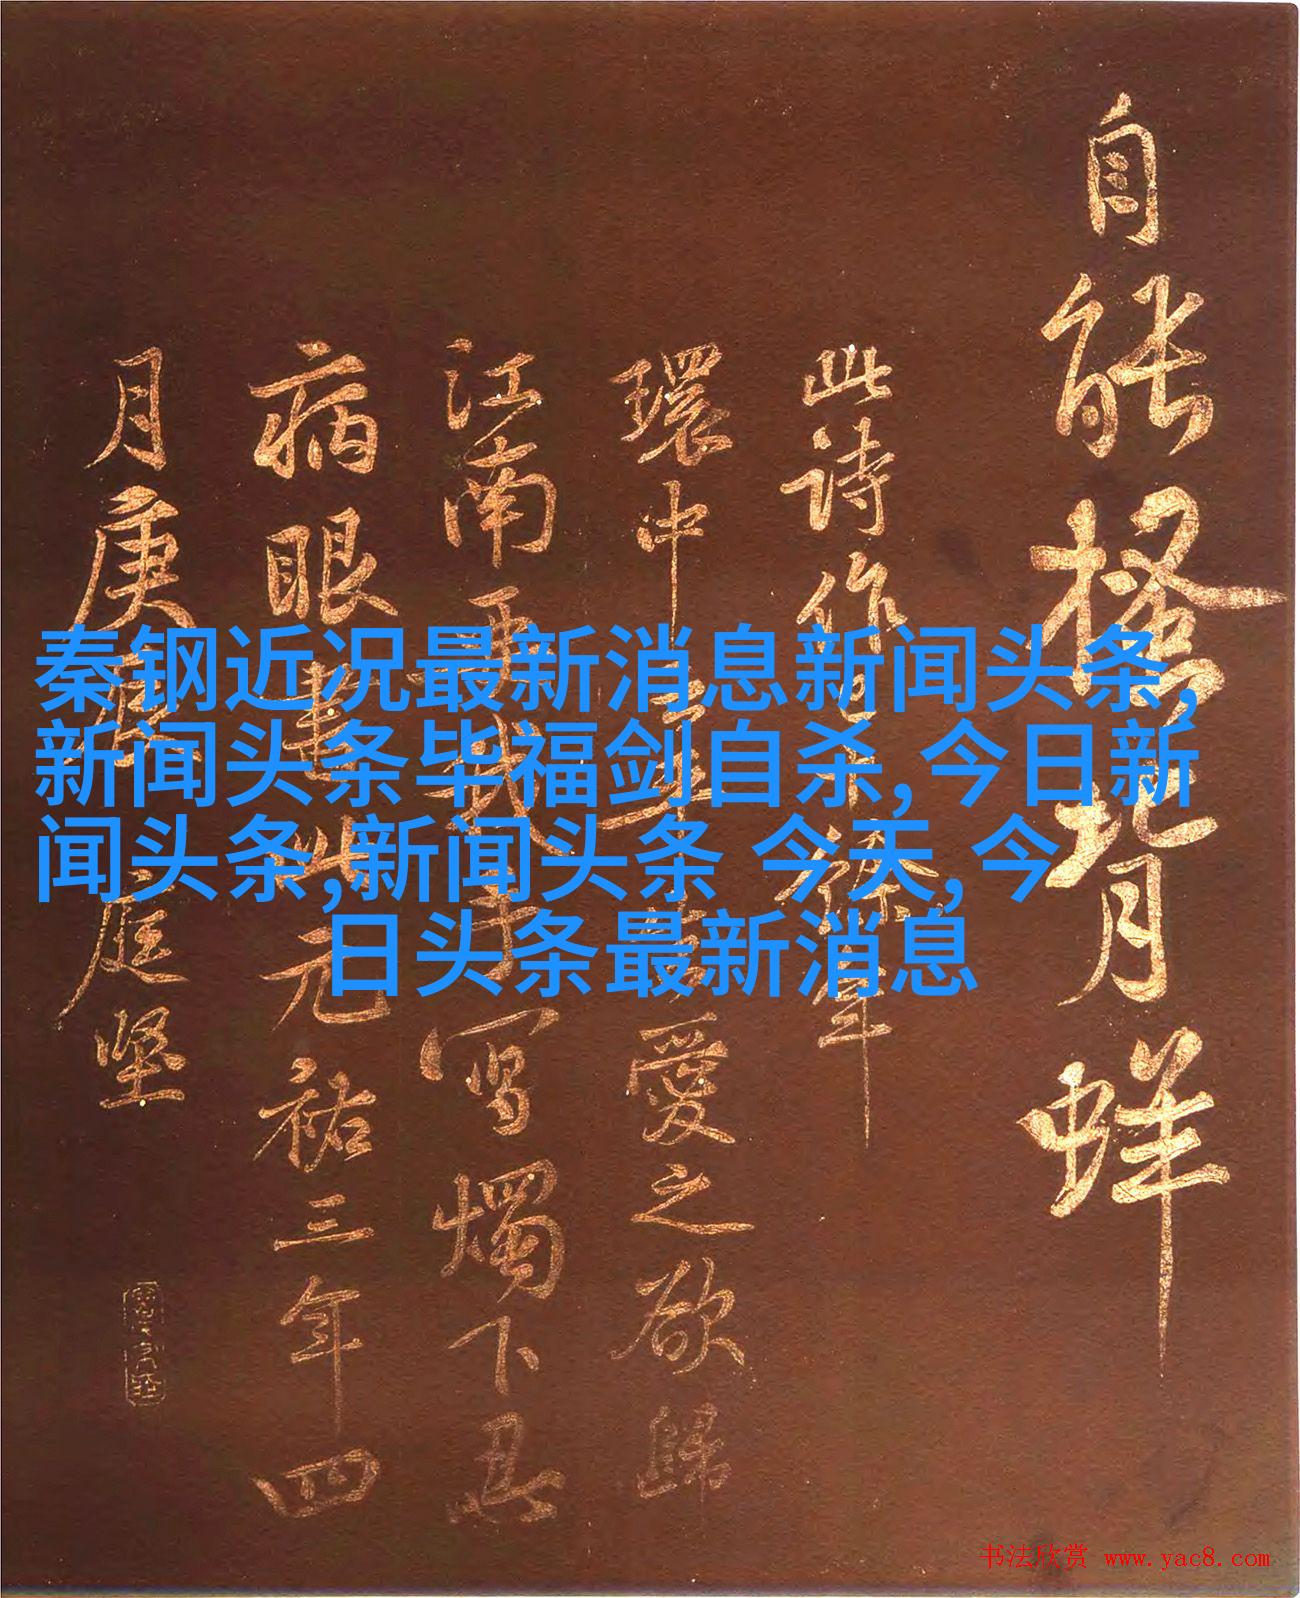 秦钢近况最新消息新闻头条,
新闻头条毕福剑自杀,今日新
闻头条,新闻头条 今天,今
日头条最新消息
自能搔背蛘
此詩作餘年
環中愛之欲歸
江南我手寫燭下忍
病眼書此元祐三年四
月庚辰庭堅
书法欣赏 www.yac8.com